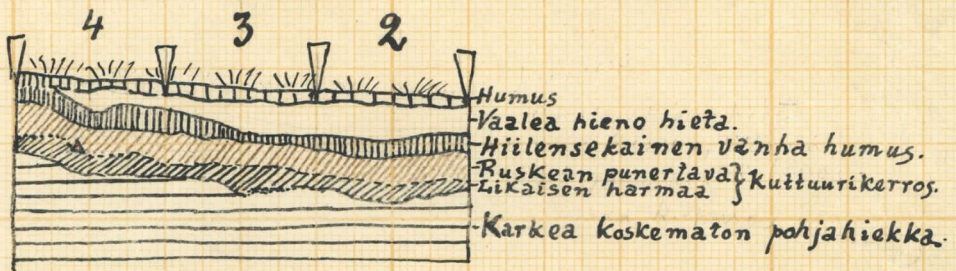 4 3 2
Humus
Vaalea hieno hieta.
Hiilensekainen vanha humus.
Ruskean punertava
Likaisen harmaa } Kulttuurikerros.
Karkea koskematon pohjahiekka.